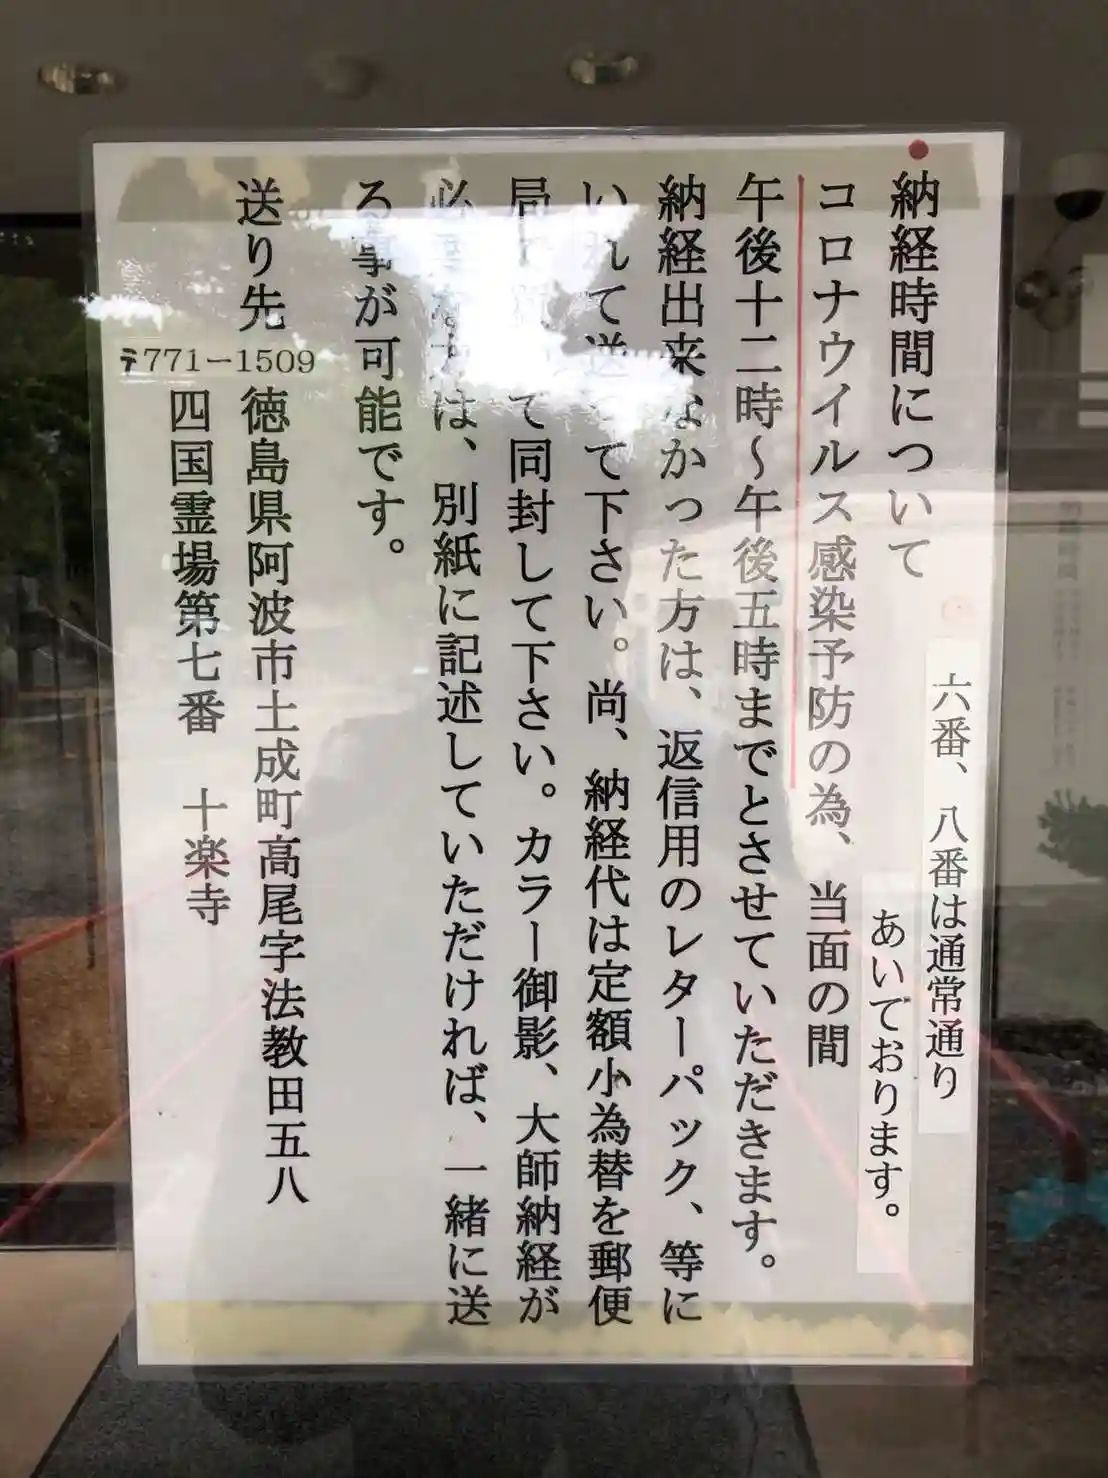 納経時間について
六番、八番は通常通り
あいております。
コロナウイルス感染予防の為、当面の間
午後十二時～午後五時までとさせていただきます。
納経出来なかった方は、返信用のレターパック、等に
いれて送って下さい。尚、納経代は定額小為替を郵便
局 て同封して下さい。カラー御影、大師納経が
必要な方は、別紙に記述していただければ、一緒に送
る事が可能です。
送り先 〒771－1509 徳島県阿波市土成町高尾字法教田五八
四国霊場第七番 十楽寺